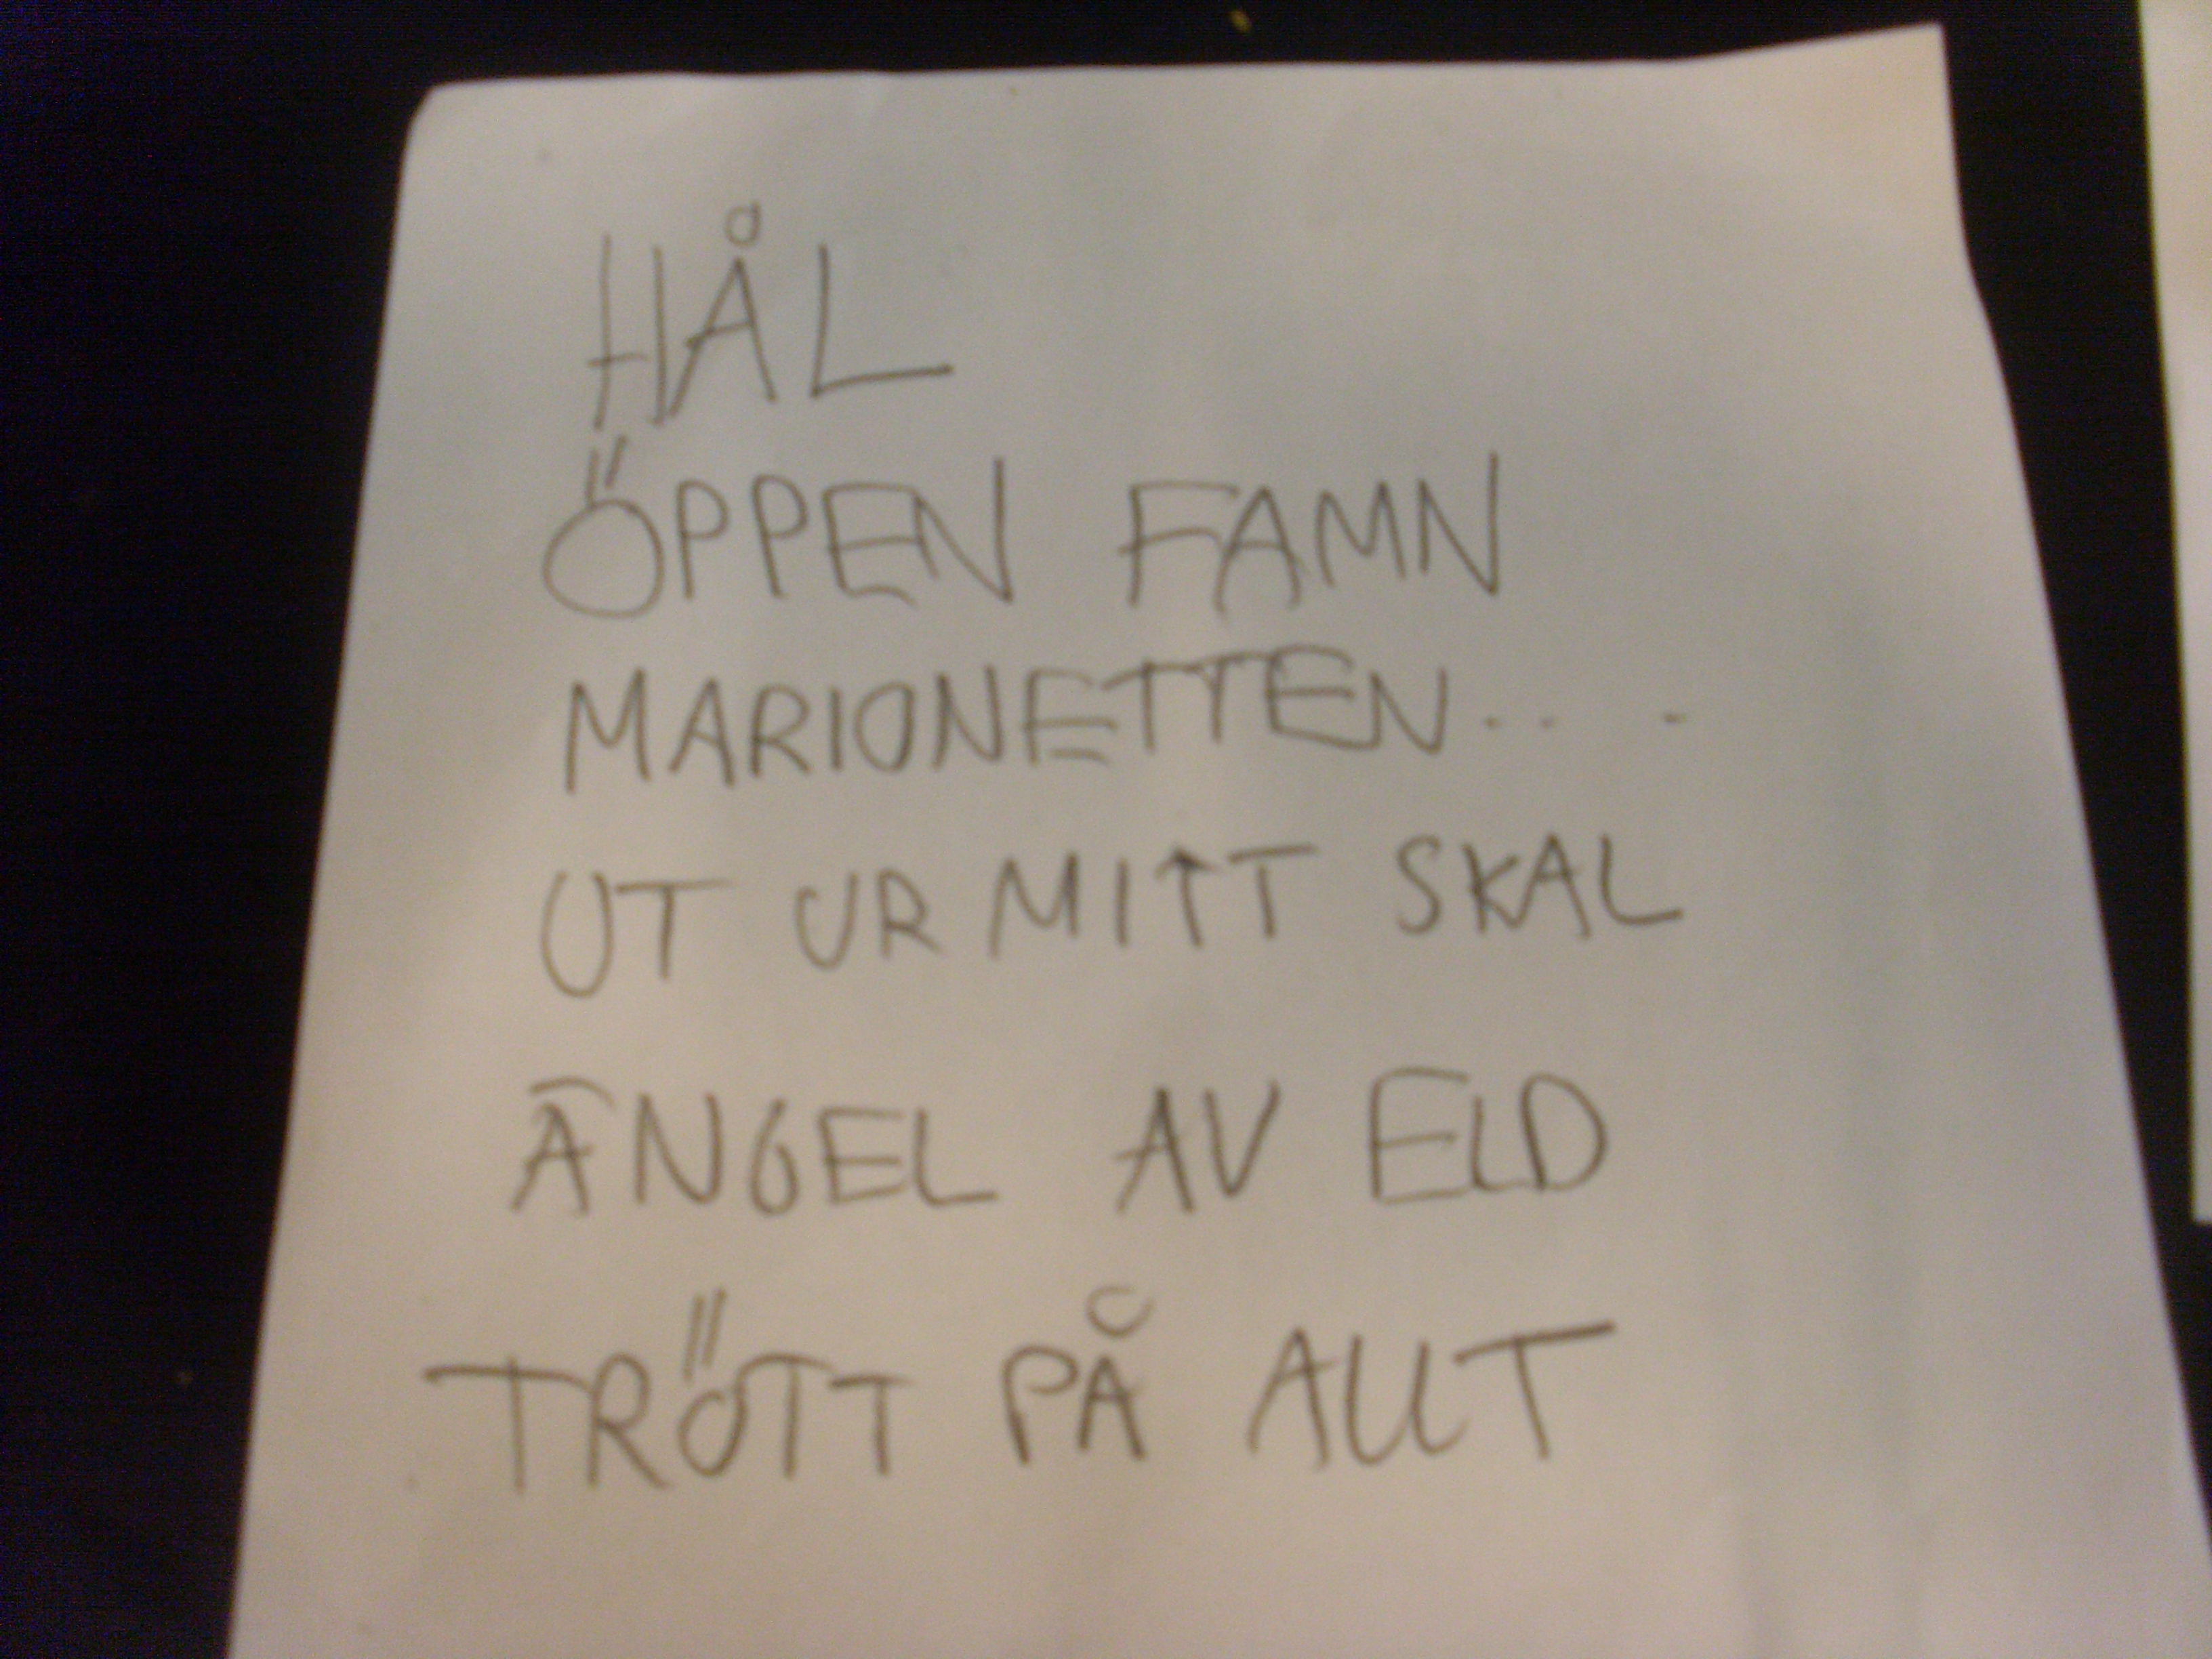 HÅL
ÖPPEN FAMN
MARIONETTEN.. .
UT UR MITT SKAL
ÄNGEL AV ELD
TRÖTT PÅ ALLT